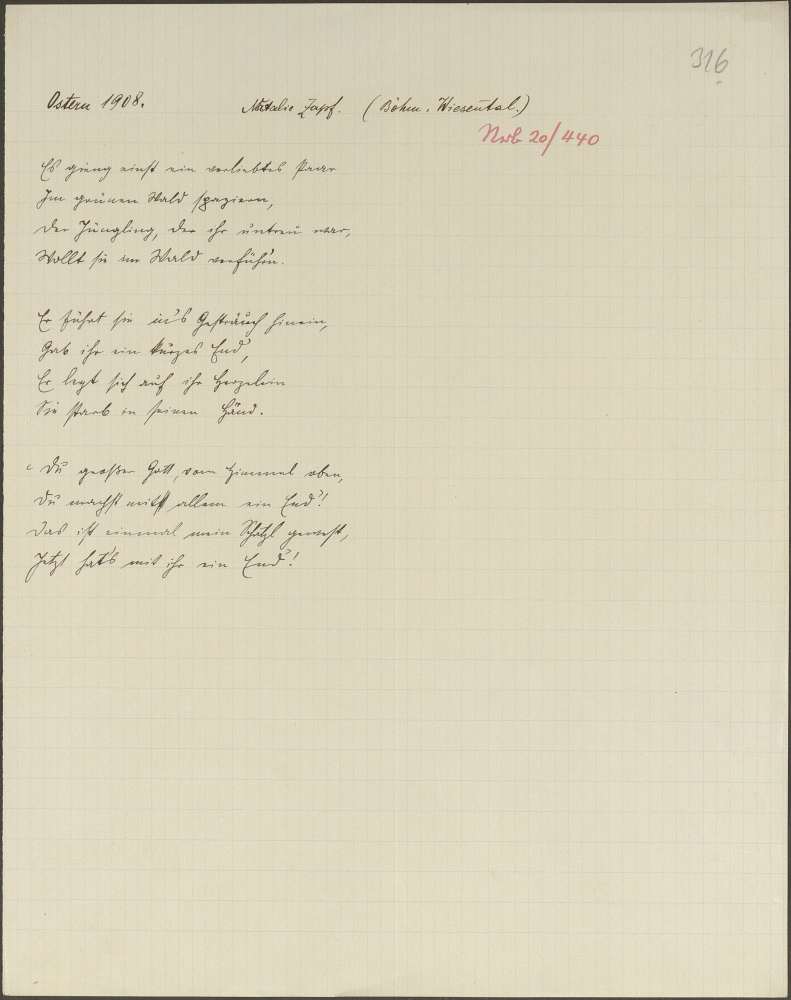 316
Ostern 1908. Natalie Zapf. (Böhm. Wiesental.)
Nrb 20/440
Es gieng einst ein verliebtes Paar
Im grünen Wald spaziern,
Der Jüngling, der ihr untreu war,
Wollt sie im Wald verführn.
Er führt sie in's Gesträuch hinein,
Gab ihr ein kurzes End',
Er legt sich auf ihr Herzelein
Sie starb in seinen Händ.
Du großer Gott, vom Himmel oben,
Du machst mit allem ein End'!
Das ist einmal mein Schatzl gewest,
Jetzt hat's mit ihr ein End'!